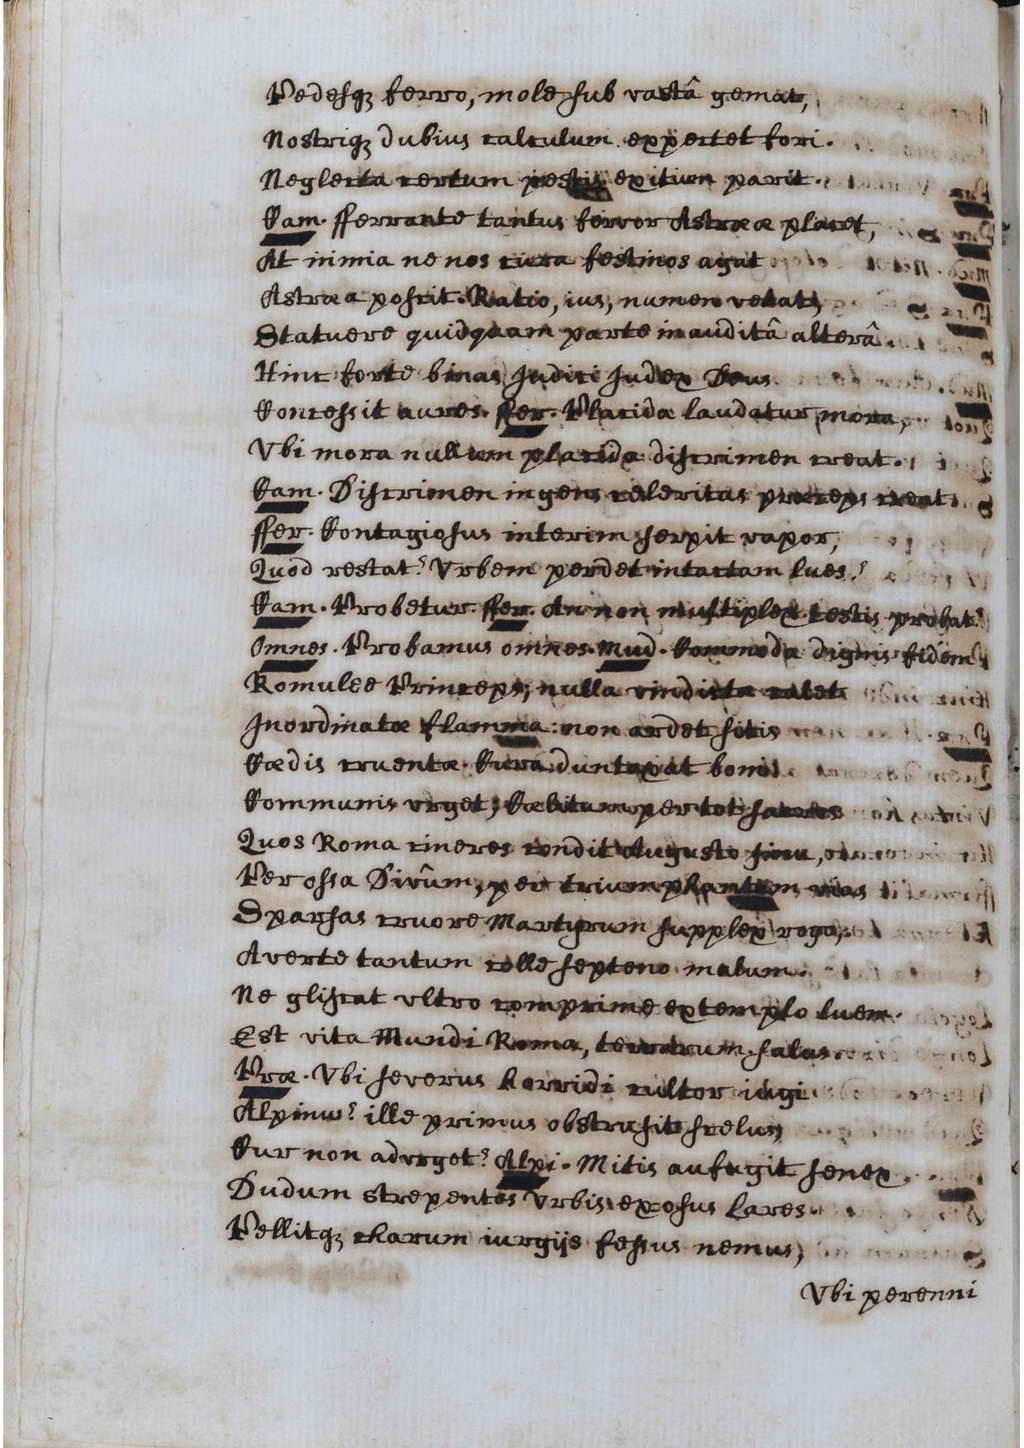 Pedesq3 ferro, mole sub vastâ gemat,
Nostriq3 dubius calculum expectet fori.
Neglecta certum pestis exitium parit.
Cam. Fferrante tantus fervor Astrææ placet,
At nimia ne nos cura festinos agat
Astræa poscit. Ratio, ius, numen vetat,
Statuere quidquam parte inauditâ alterâ.
Hinc forte binas Iudici Iudex Deus
Concessit aures. Ffer. Placida laudatur mora,
Vbi mora nullum placida discrimen creat.
Cam. Discrimen ingens celeritas præceps creat.
Ffer. Contagiosus interim serpit vapor,
Quod restat? Vrbem perdet intactam lues?
Cam. Probetur. Ffer. An non multiplex testis probat?
Omnes. Probamus omnes. Mud. Commoda dignis fidem
Romulee Princeps, nulla vindicta calet
Inordinatæ flamma: non ardet sitis
Cædis cruentæ. Cura duntaxat boni
Communis vrget; Cælitum per tot sacros
Quos Roma cineres condit Augusto sinu,
Per ossa Divûm, per triumphantum vias
Sparsas cruore Martyrum supplex rogo,
Averte tantum colle septeno malum.
Ne gliscat vltro comprime extemplo luem.
Est vita Mundi Roma, terrarum salus.
Præ. Vbi severus horridi cultor iugi
Alpinus? ille primus obstrusit scelus,
Cur non adurget? Alpi. Mitis aufugit senex
Dudum strepentes Vrbis exosus Lares.
Pellitq3 charum iurgijs fessus nemus,
Vbi perenni